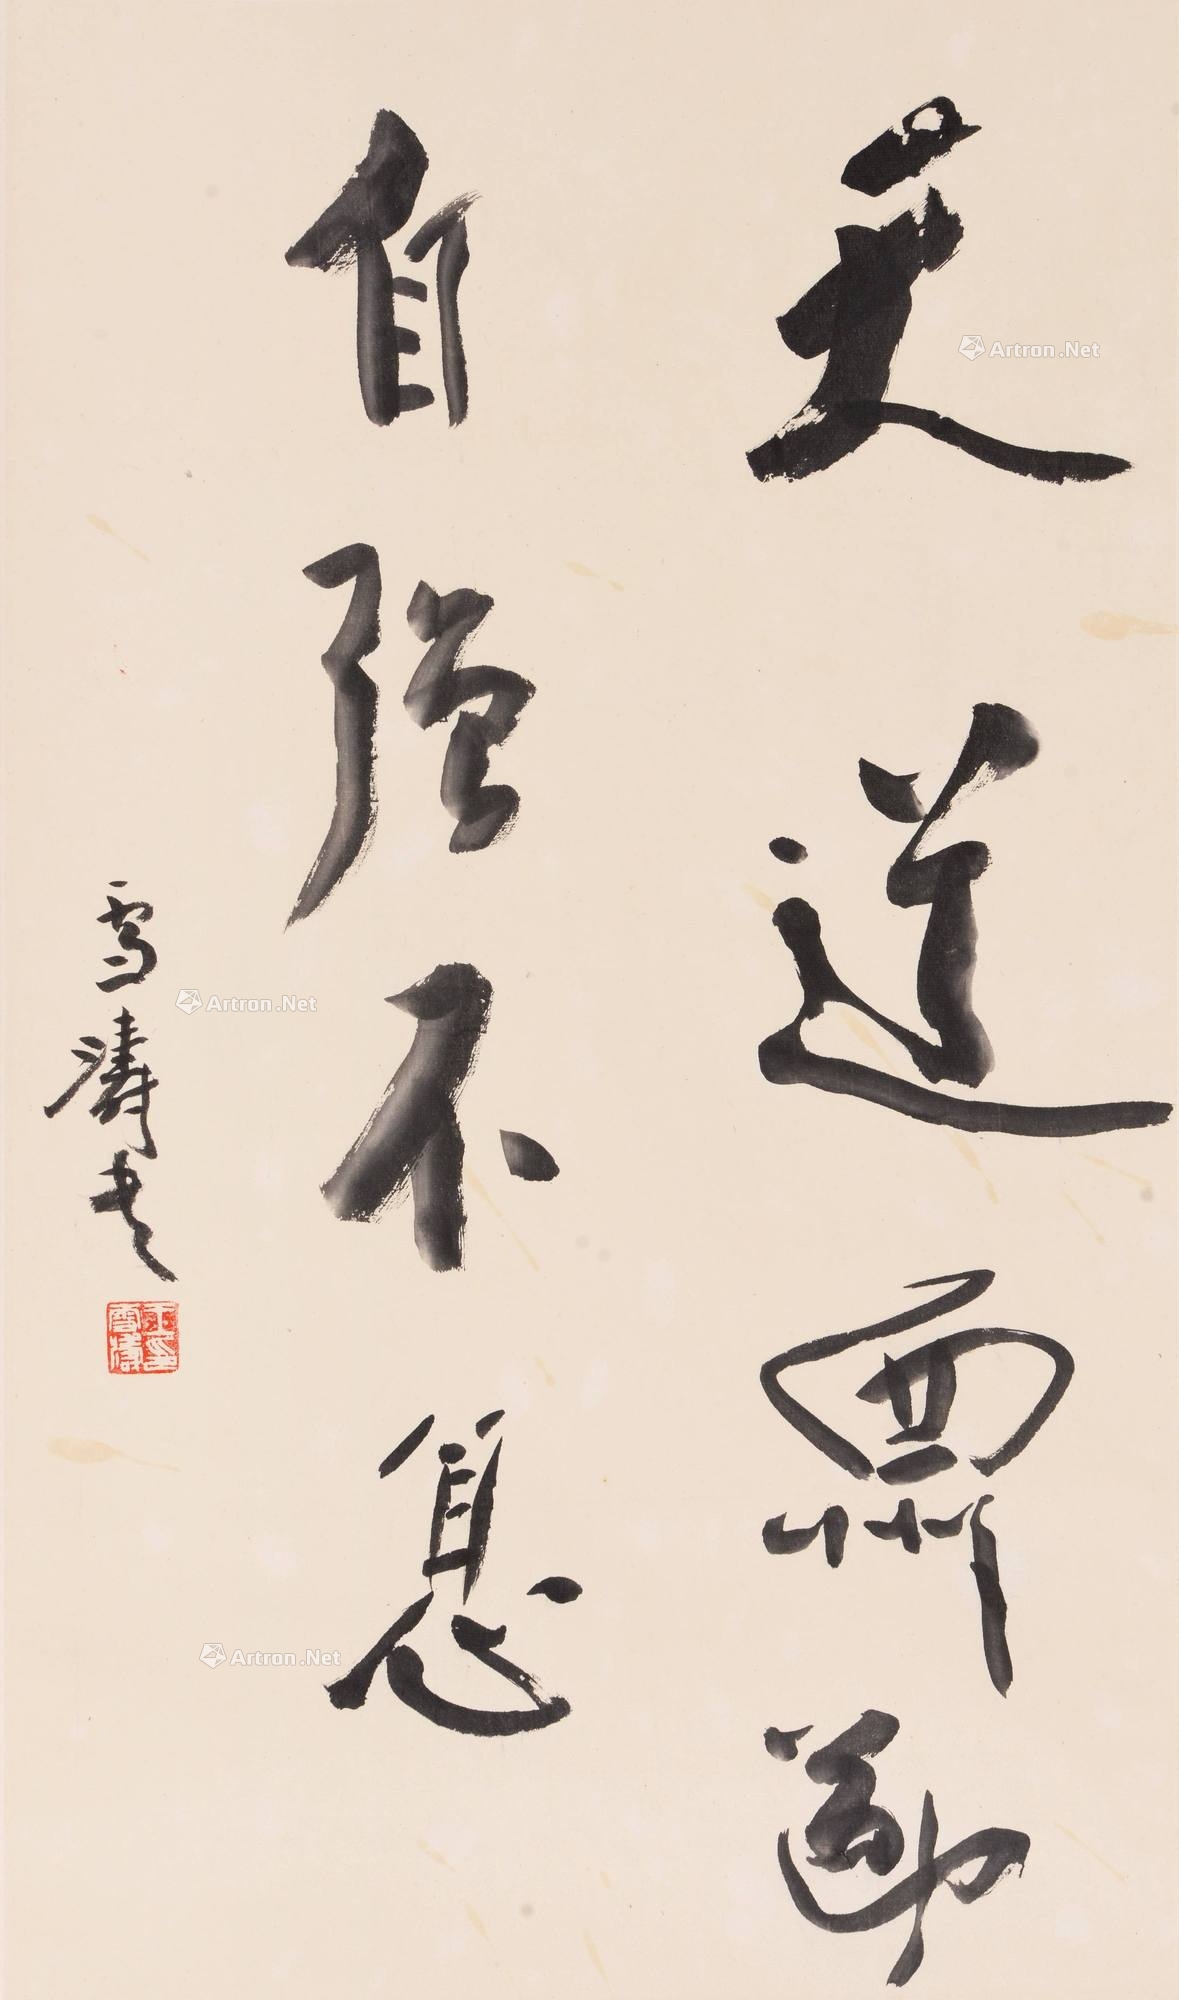 天道酬勤
自强不息
雪濤书
王印
雪濤
Artron.Net
Artron.Net
Artron.Net